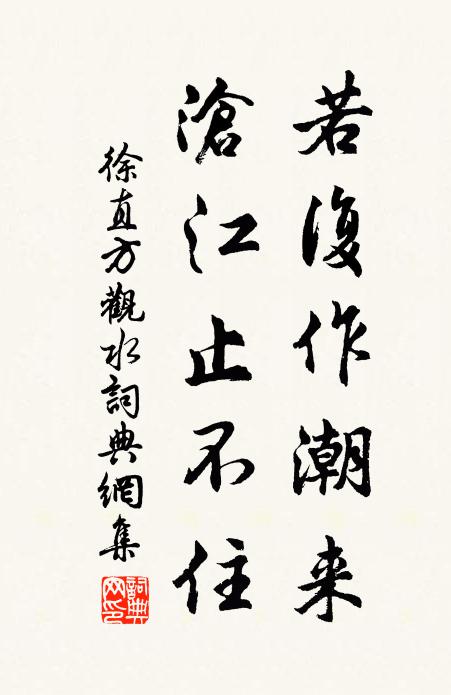 若復作潮来
滄江止不住
徐直方觀水詞典網集
詞典网印